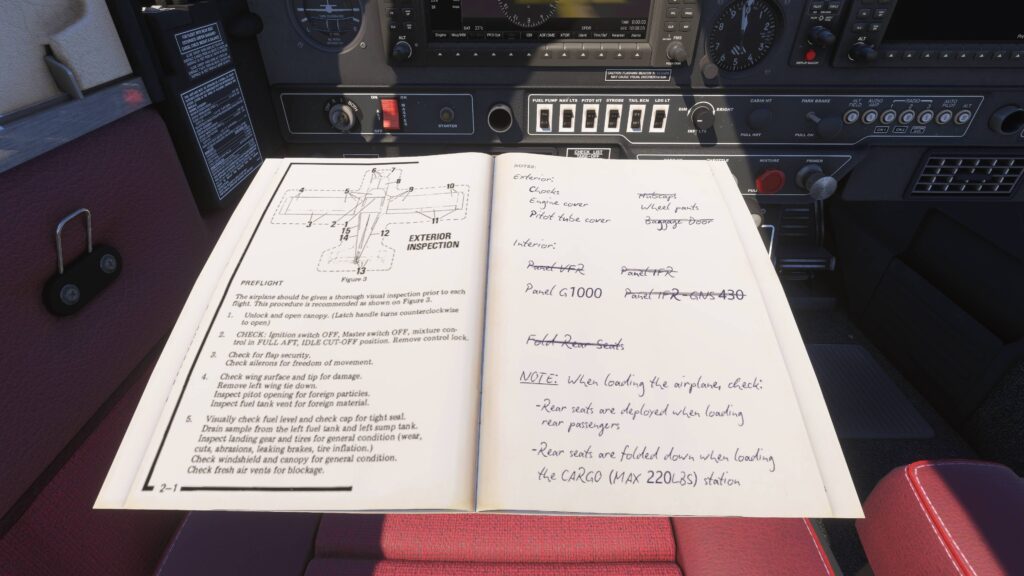 FUEL PUMP NAV LTS PITOT HT STROBE TAIL BCN LDG LT
BRIGHT
CABIN HT
PARK BRAKE
PULL HOT
PULL ON
STARTER
ON
OFF
CHECK LIST
MIXTURE
PRIMER
EXTERIOR
INSPECTION
1
2
3
4
5
6
7
8
9
10
11
12
13
14
15
Figure 3
PREFLIGHT
The airplane should be given a thorough visual inspection prior to each
flight. This procedure is recommended as shown on Figure 3.
1. Unlock and open canopy. (Latch handle turns counterclockwise
to open)
2. CHECK: Ignition switch OFF, Master switch OFF, mixture con-
trol in FULL AFT, IDLE CUT-OFF position. Remove control lock.
3. Check for flap security.
Check ailerons for freedom of movement.
4. Check wing surface and tip for damage.
Remove left wing tie down.
Inspect pitot opening for foreign particles.
Inspect fuel tank vent for foreign material.
5. Visually check fuel level and check cap for tight seal.
Drain sample from the left fuel tank and left sump tank.
Inspect landing gear and tires for general condition (wear,
cuts, abrasions, leaking brakes, tire inflation.)
Check windshield and canopy for general condition.
Check fresh air vents for blockage.
2-1
NOTES:
Exterior:
Chocks
Engine cover
Pitot tube cover
Hubcaps
Wheel pants
Baggage Door
Interior:
Panel VFR
Panel IFR
Panel G1000
Panel IFR-GNS 430
Fold Rear Seats
NOTE: When loading the airplanes check:
-Rear seats are deployed when loading
rear passengers
-Rear seats are folded down when loading
the CARGO (MAX 220LBS) station